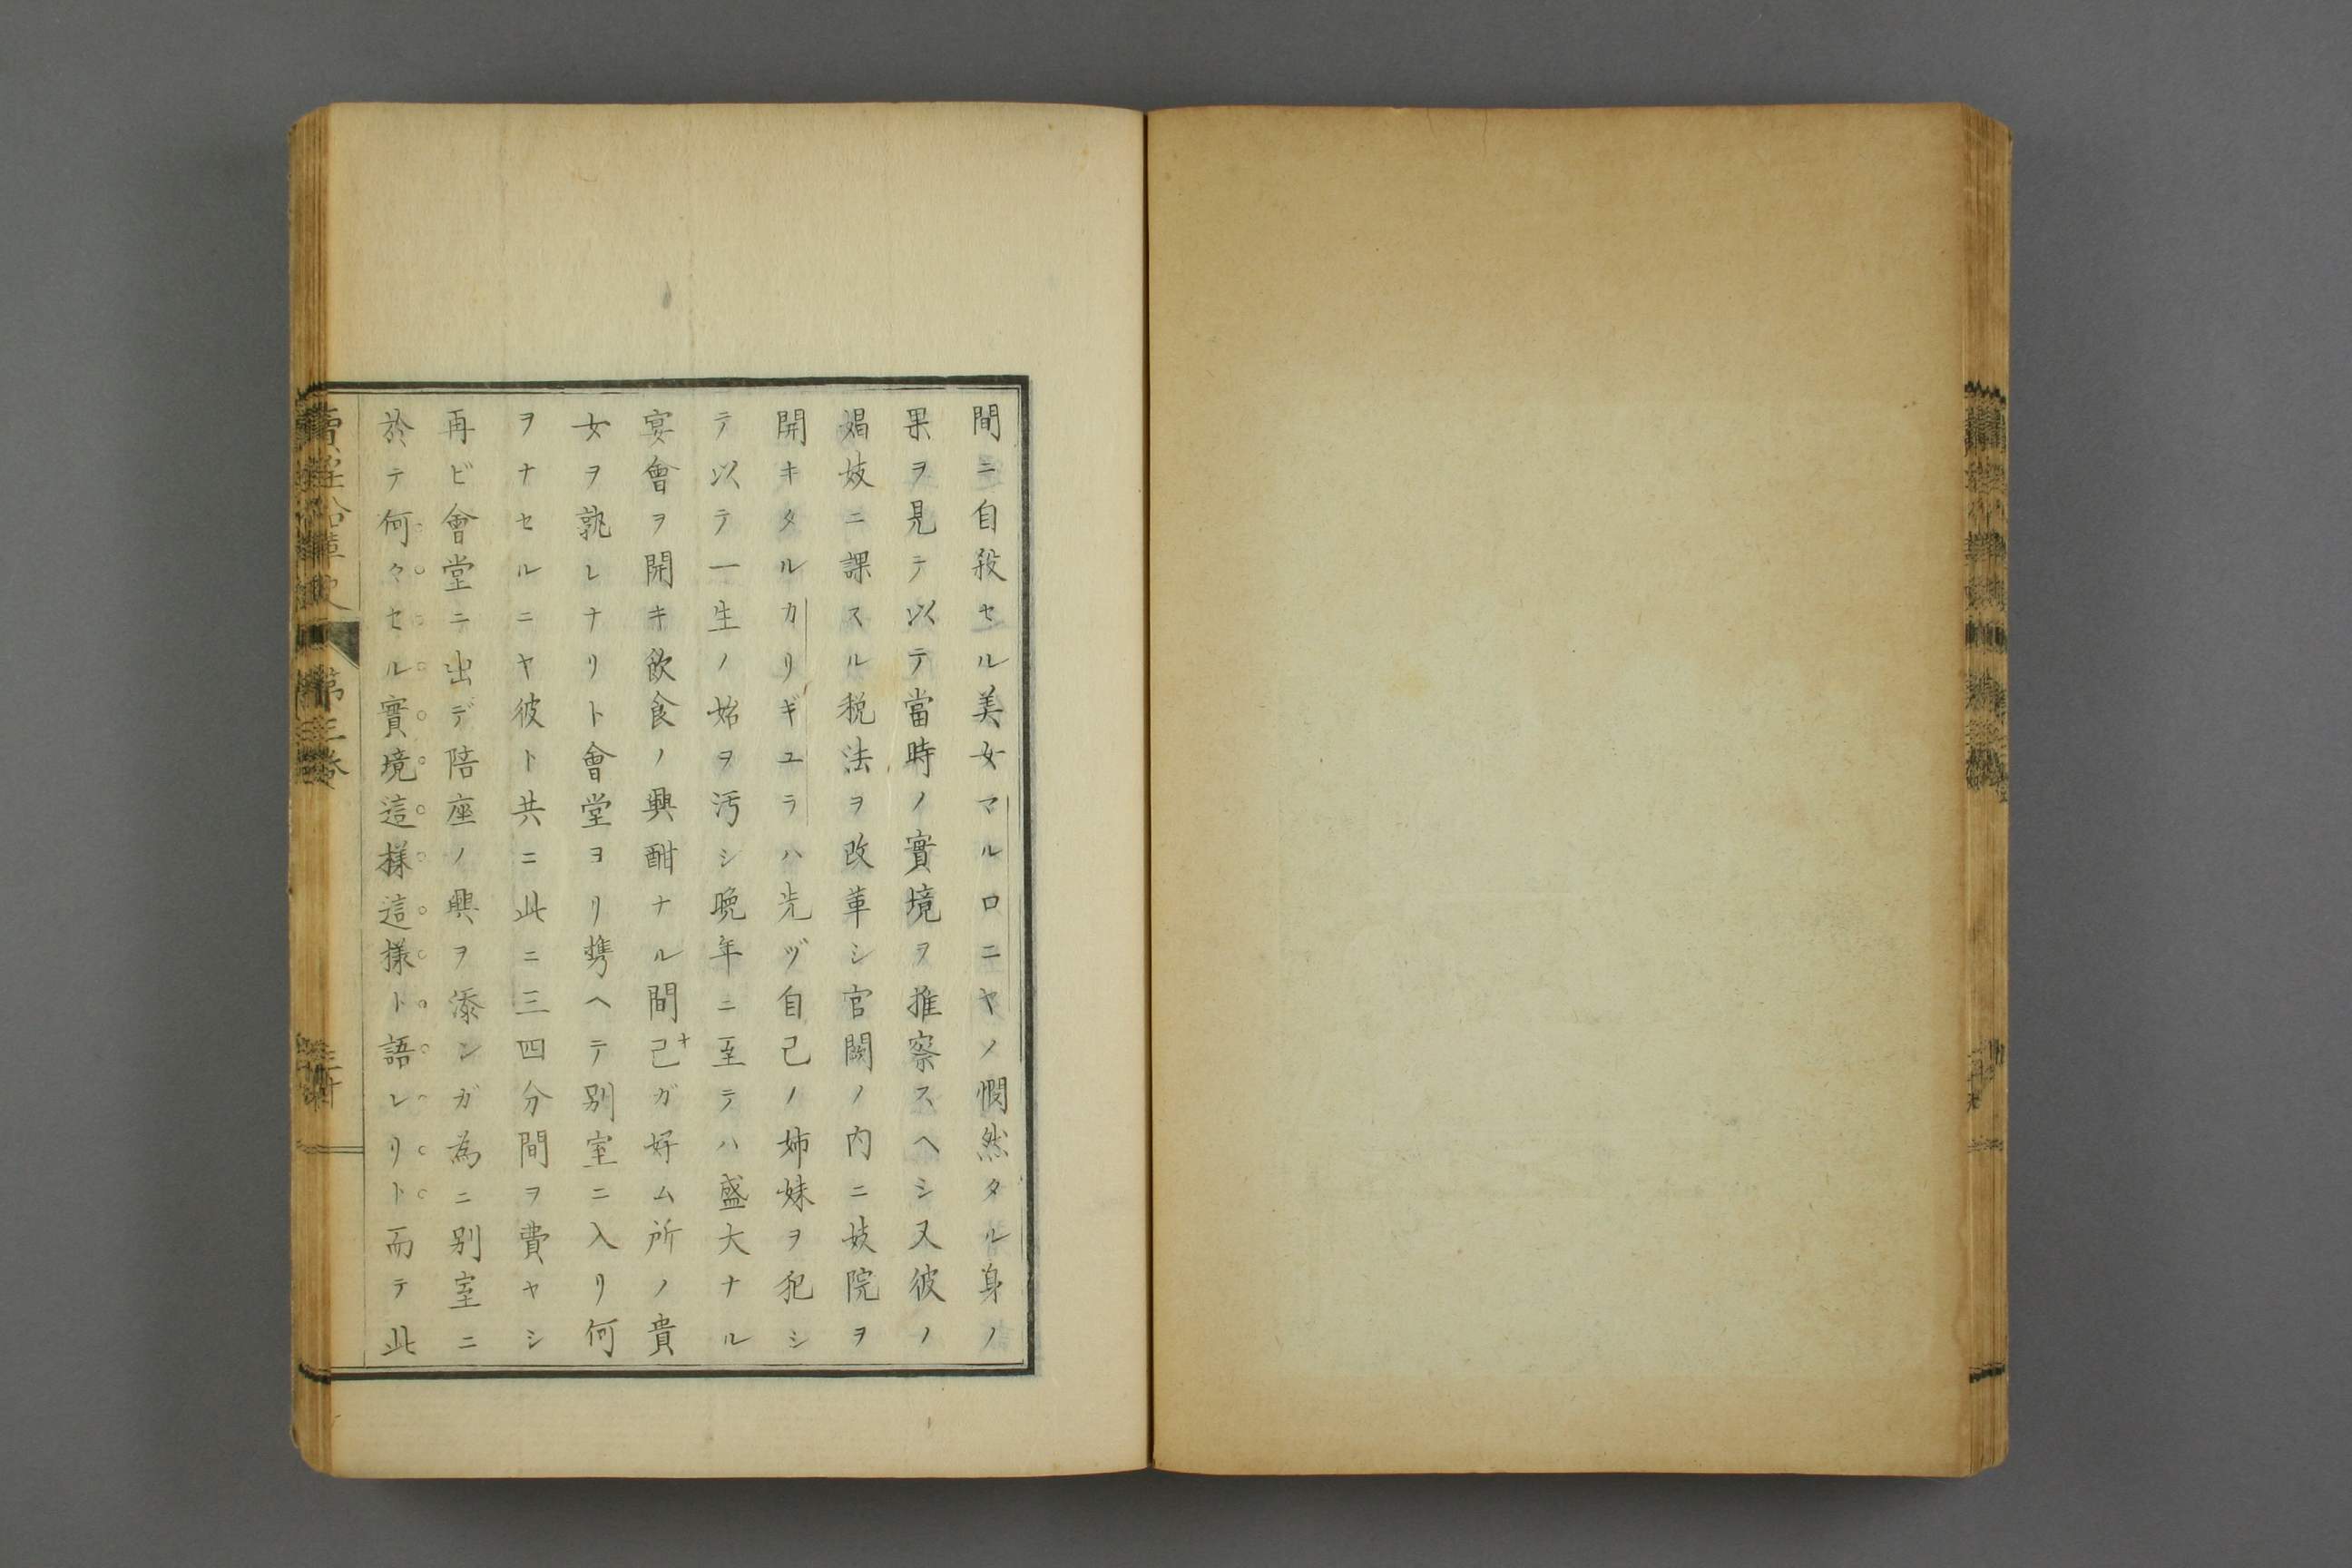 間ニ自殺セル美女マルロニヤノ憫然タル身ノ
果ヲ見テ以テ當時ノ實境ヲ推察スヘシ又彼ノ
娼妓ニ課スル税法ヲ改革シ官闕ノ内ニ妓院ヲ
開キタルカリギユラハ先ヅ自己ノ姉妹ヲ犯シ
テ以テ一生ノ始ヲ汚シ晩年ニ至テハ盛大ナル
宴會ヲ開キ飲食ノ興酣ナル間己ガ好ム所ノ貴
女ヲ孰レナリト會堂ヨリ携ヘテ別室ニ入リ何
ヲナセルニヤ彼ト共ニ此ニ三四分間ヲ費ヤシ
再ビ會堂ニ出デ陪座ノ興ヲ添ンガ為ニ別室ニ
於テ何々セル實境這様這様ト語レリト而テ此
賣淫沿革史 第三巻